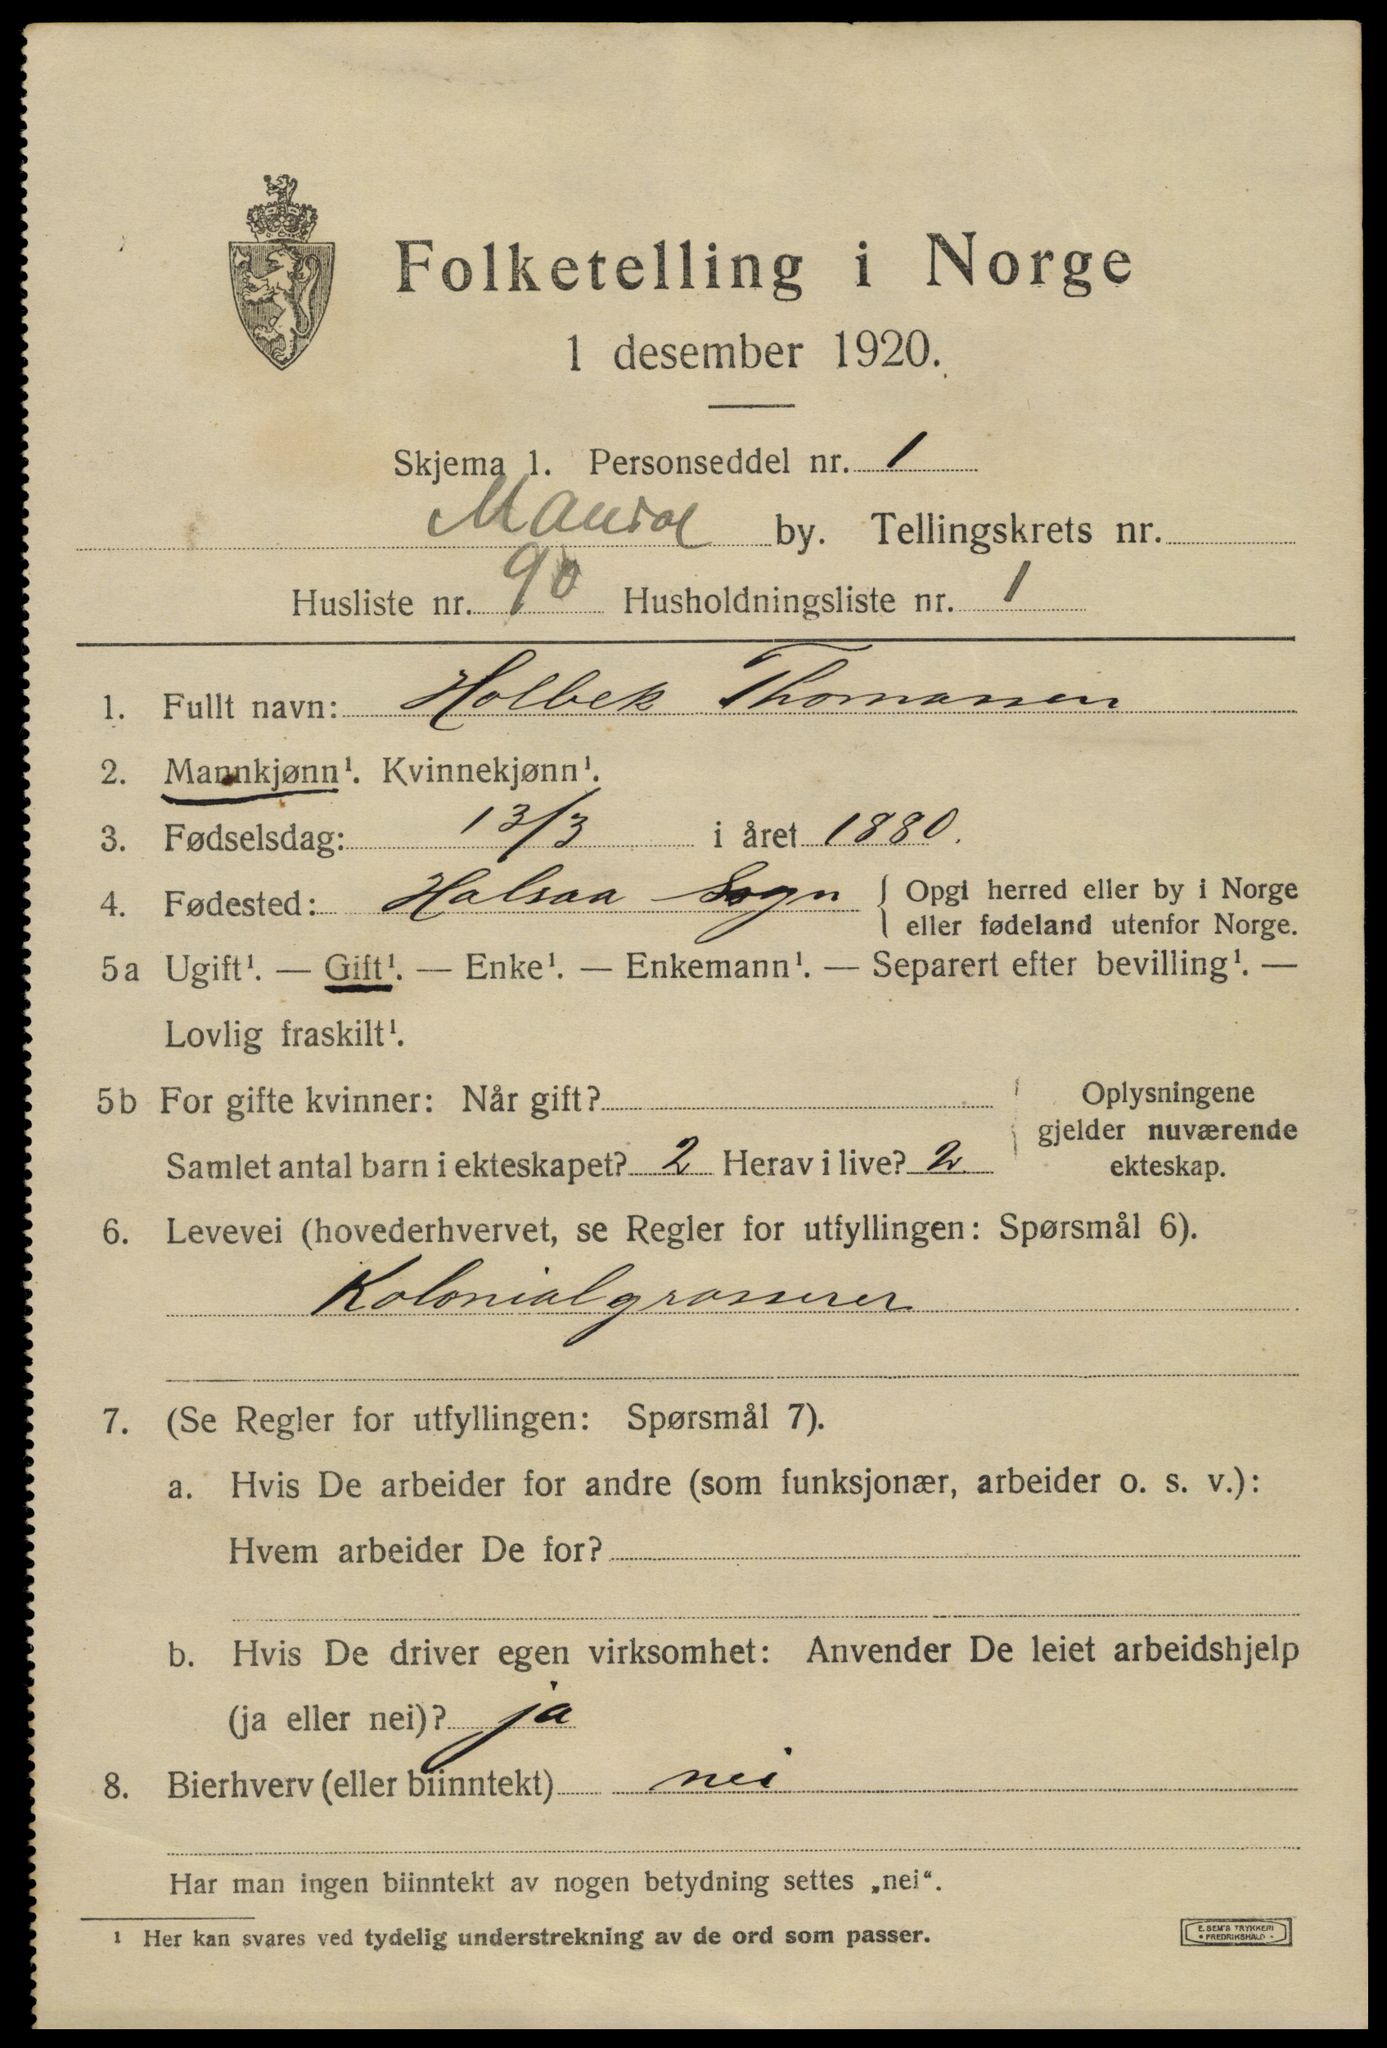 Folketelling i Norge
1 desember 1920.
Skjema 1. Personseddel nr. 1
Mandal by. Tellingskrets nr.
Husliste nr. 90 Husholdningsliste nr. 1
1. Fullt navn: Holbek Thomassen
2. Mannkjønn¹. Kvinnekjønn¹.
3. Fødselsdag: 13/3 i året 1880.
4. Fødested: Halsaa Sogn { Opgi herred eller by i Norge
eller fødeland utenfor Norge.
5a Ugift¹. — Gift¹. — Enke¹. — Enkemann¹. — Separert efter bevilling¹. —
Lovlig fraskilt¹.
5b For gifte kvinner: Når gift?
Samlet antal barn i ekteskapet? 2 Herav i live? 2
Oplysningene
gjelder nuværende
ekteskap.
6. Levevei (hovederhvervet, se Regler for utfyllingen: Spørsmål 6).
Kolonialgrosserer
7. (Se Regler for utfyllingen: Spørsmål 7).
a. Hvis De arbeider for andre (som funksjonær, arbeider o. s. v.):
Hvem arbeider De for?
b. Hvis De driver egen virksomhet: Anvender De leiet arbeidshjelp
(ja eller nei)? ja
8. Bierhverv (eller biinntekt) nei
Har man ingen biinntekt av nogen betydning settes „nei“.
¹ Her kan svares ved tydelig understrekning av de ord som passer.
E. SEM'S TRYKKERI
• FREDRIKSHALD •